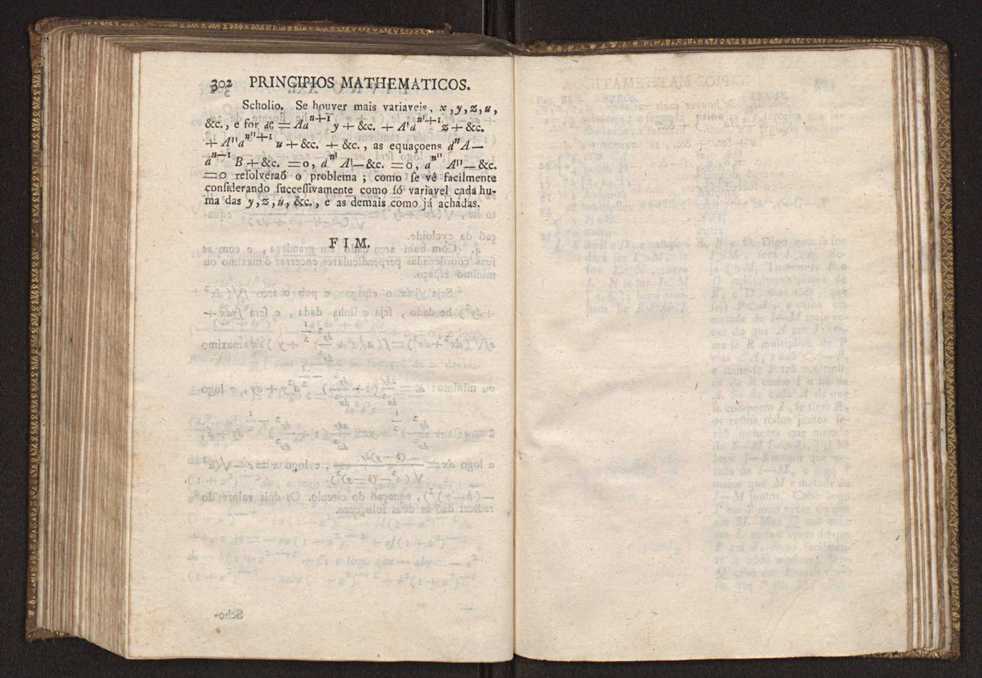 302 PRINCIPIOS MATHEMATICOS.
Scholio. Se houver mais variaveis, x, y, z, u,
&c., e for dc = Ad^{n+1} y + &c. + A'd^{n'+1} z + &c.
+ A''d^{n''+1} u + &c. + &c., as equaçoens d^n A —
d^{n-1} B + &c. = 0, d^{n'} A' — &c. = 0, d^{n''} A'' — &c.
= 0 reſolveraõ o problema ; como ſe vê facilmente
conſiderando ſucceſſivamente como ſó variavel cada hu-
ma das y, z, u, &c., e as demais como já achadas.
FIM.